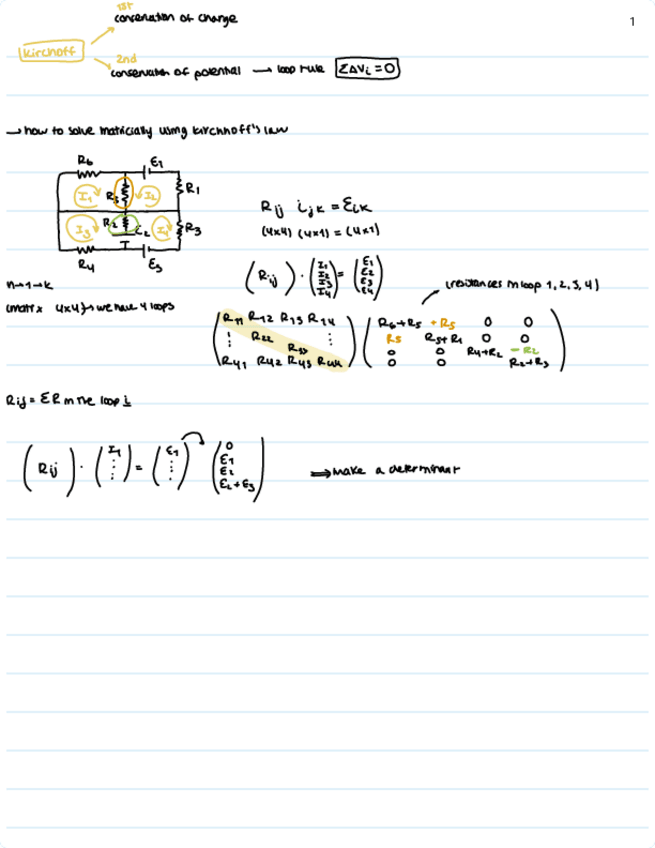 1
1st
conservation of charge
Kirchoff
2nd
conservation of potential → loop rule ΣΔVi = 0
→ how to solve matricially using Kirchhoff's law
R6 E1
I1 R5 I2 R1
I3 R2 E2 I4 R3
R4 E3
Rij ijk = Eik
(4x4) (4x1) = (4x1)
(Rij) · (I1 I2 I3 I4) = (E1 E2 E3 E4)
n→1→k
(matrix 4x4) → we have 4 loops
(resistances in loop 1, 2, 3, 4)
R11 R12 R13 R14
⋮ R22 ⋮
R33
R41 R42 R43 R44
R6+R5 + R5 0 0
R5 R5+R1 0 0
0 0 R4+R2 - R2
0 0 R2+R3
Rij = ΣR in the loop i
(Rij) · (I1 ⋮) = (E1 ⋮) (0 E1 E2 E2+E3)
⟹ make a determinant